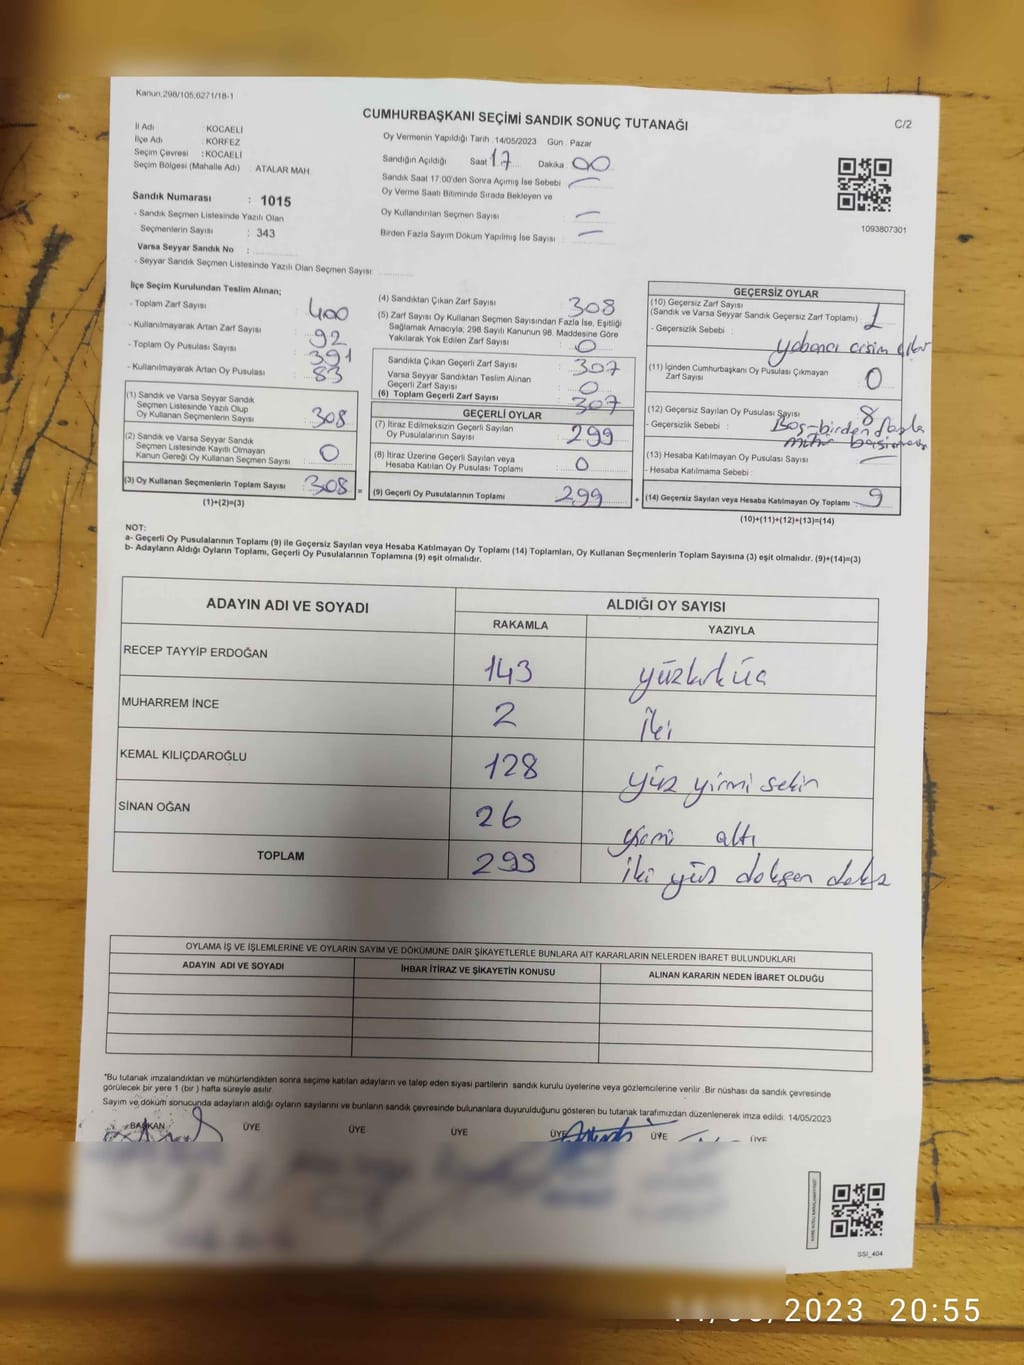 Kanun,298/105,6271/18-1
CUMHURBAŞKANI SEÇİMİ SANDIK SONUÇ TUTANAĞI
C/2
İl Adı : KOCAELİ
İlçe Adı : KÖRFEZ
Seçim Çevresi : KOCAELİ
Seçim Bölgesi (Mahalle Adı) : ATALAR MAH.
Sandık Numarası : 1015
- Sandık Seçmen Listesinde Yazılı Olan
Seçmenlerin Sayısı : 343
Varsa Seyyar Sandık No :
- Seyyar Sandık Seçmen Listesinde Yazılı Olan Seçmen Sayısı:
Oy Vermenin Yapıldığı Tarih : 14/05/2023 Gün : Pazar
Sandığın Açıldığı Saat 17 Dakika : 00
Sandık Saat 17.00'den Sonra Açımış İse Sebebi —
Oy Verme Saati Bitiminde Sırada Bekleyen ve
Oy Kullandırılan Seçmen Sayısı : —
Birden Fazla Sayım Döküm Yapılmış İse Sayısı : —
1093807301
İlçe Seçim Kurulundan Teslim Alınan;
- Toplam Zarf Sayısı : 400
- Kullanılmayarak Artan Zarf Sayısı : 92
- Toplam Oy Pusulası Sayısı : 391
- Kullanılmayarak Artan Oy Pusulası : 83
(1) Sandık ve Varsa Seyyar Sandık
Seçmen Listesinde Yazılı Olup
Oy Kullanan Seçmenlerin Sayısı : 308
(2) Sandık ve Varsa Seyyar Sandık
Seçmen Listesinde Kayıtlı Olmayan
Kanun Gereği Oy Kullanan Seçmen Sayısı : 0
(3) Oy Kullanan Seçmenlerin Toplam Sayısı : 308
(1)+(2)=(3)
(4) Sandıktan Çıkan Zarf Sayısı : 308
(5) Zarf Sayısı Oy Kullanan Seçmen Sayısından Fazla İse, Eşitliği
Sağlamak Amacıyla; 298 Sayılı Kanunun 98. Maddesine Göre
Yakılarak Yok Edilen Zarf Sayısı : 0
Sandıkta Çıkan Geçerli Zarf Sayısı : 307
Varsa Seyyar Sandıktan Teslim Alınan
Geçerli Zarf Sayısı : 0
(6) Toplam Geçerli Zarf Sayısı : 307
GEÇERLİ OYLAR
(7) İtiraz Edilmeksizin Geçerli Sayılan
Oy Pusulalarının Sayısı : 299
(8) İtiraz Üzerine Geçerli Sayılan veya
Hesaba Katılan Oy Pusulası Toplamı : 0
(9) Geçerli Oy Pusulalarının Toplamı : 299
GEÇERSİZ OYLAR
(10) Geçersiz Zarf Sayısı
(Sandık ve Varsa Seyyar Sandık Geçersiz Zarf Toplamı) : 1
- Geçersizlik Sebebi : yabancı cisim
(11) İçinden Cumhurbaşkanı Oy Pusulası Çıkmayan
Zarf Sayısı : 0
(12) Geçersiz Sayılan Oy Pusulası Sayısı : 8
- Geçersizlik Sebebi : Boş-birden fazla
mühür
(13) Hesaba Katılmayan Oy Pusulası Sayısı : —
- Hesaba Katılmama Sebebi :
(14) Geçersiz Sayılan veya Hesaba Katılmayan Oy Toplamı : 9
(10)+(11)+(12)+(13)=(14)
NOT:
a- Geçerli Oy Pusulalarının Toplamı (9) ile Geçersiz Sayılan veya Hesaba Katılmayan Oy Toplamı (14) Toplamları, Oy Kullanan Seçmenlerin Toplam Sayısına (3) eşit olmalıdır. (9)+(14)=(3)
b- Adayların Aldığı Oyların Toplamı, Geçerli Oy Pusulalarının Toplamına (9) eşit olmalıdır.
ADAYIN ADI VE SOYADI ALDIĞI OY SAYISI
RAKAMLA YAZIYLA
RECEP TAYYİP ERDOĞAN 143 yüzkırküç
MUHARREM İNCE 2 iki
KEMAL KILIÇDAROĞLU 128 yüz yirmi sekiz
SİNAN OĞAN 26 yirmi altı
TOPLAM 299 iki yüz doksan dokuz
OYLAMA İŞ VE İŞLEMLERİNE VE OYLARIN SAYIM VE DÖKÜMÜNE DAİR ŞİKAYETLERLE BUNLARA AİT KARARLARIN NELERDEN İBARET BULUNDUKLARI
ADAYIN ADI VE SOYADI İHBAR İTİRAZ VE ŞİKAYETİN KONUSU ALINAN KARARIN NEDEN İBARET OLDUĞU
*Bu tutanak imzalandıktan ve mühürlendikten sonra seçime katılan adayların ve talep eden siyasi partilerin sandık kurulu üyelerine veya gözlemcilerine verilir .Bir nüshası da sandık çevresinde
görülecek bir yere 1 (bir ) hafta süreyle asılır.
Sayım ve döküm sonucunda adayların aldığı oyların sayılarını ve bunların sandık çevresinde bulunanlara duyurulduğunu gösteren bu tutanak tarafımızdan düzenlenerek imza edildi. 14/05/2023
BAŞKAN ÜYE ÜYE ÜYE ÜYE ÜYE ÜYE
SSI_404
14/05/2023 20:55